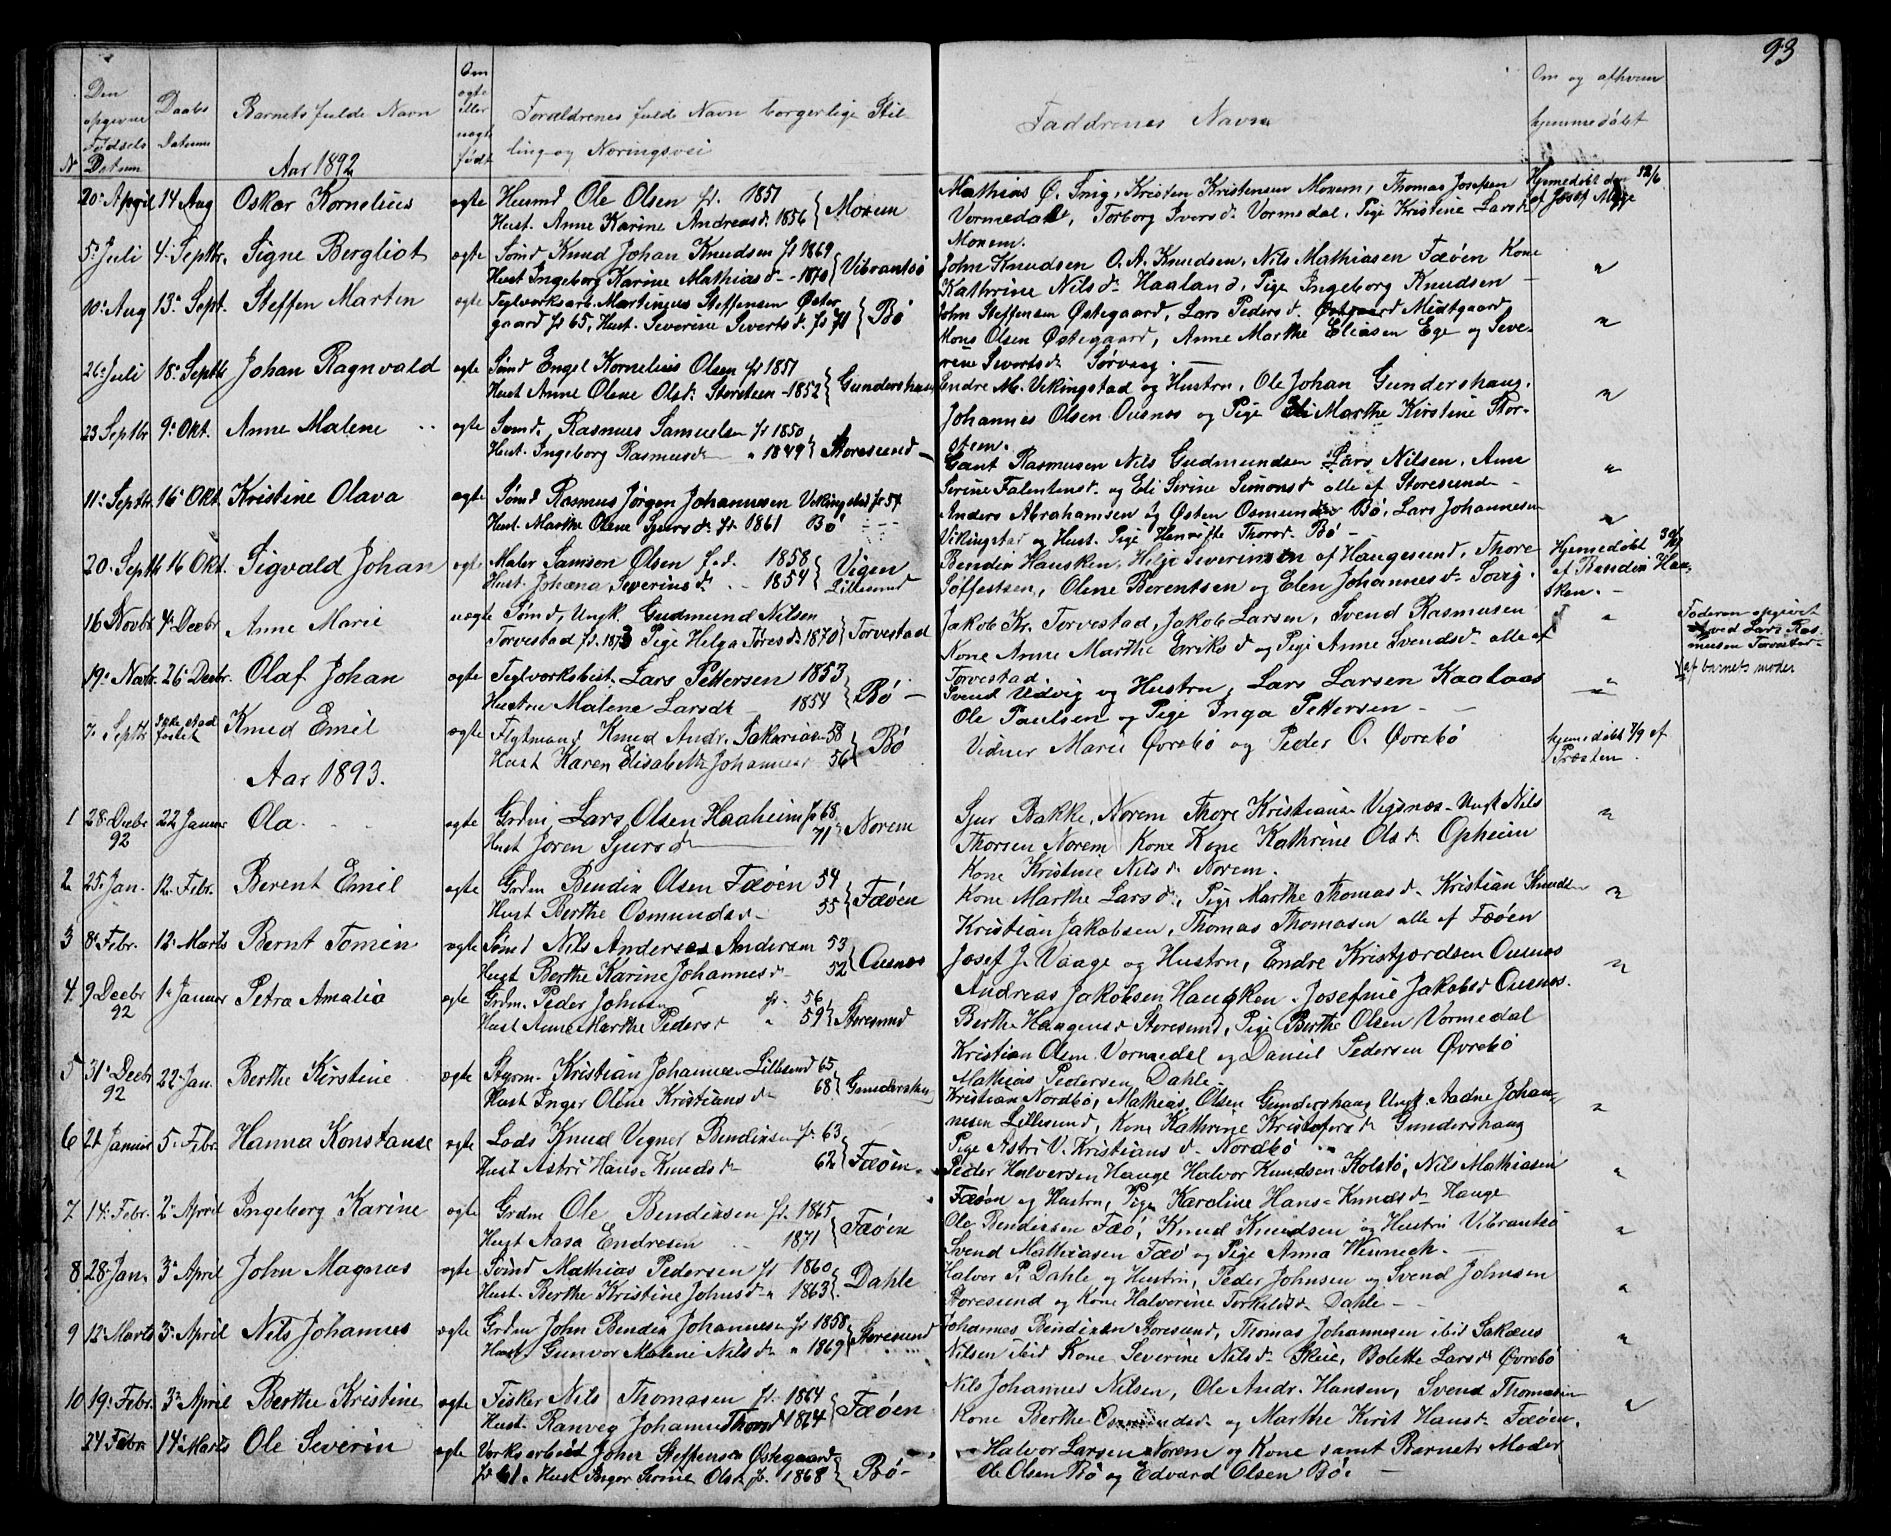 93
Den opgivne Fødsels Datum
Daabs Datum
Barnets fulde Navn
Om ægte eller uægte født
Forældrenes fulde Navn borgerlige Stil-
ling og Næringsvei
Faddrenes Navn
Om og af hvem
hjemmedøbt
N
Aar 1892
20 April 14 Aug Oskar Kornelius ægte Husmd Ole Olsen fd. 1851
Hust. Anne Karine Andreasd. 1856 } Moxem
Mathias Ø. Snig, Kristen Kristensen Moxem, Thomas Josefsen
Vormedal, Torborg Iversd. Vormedal, Pige Kristine Larsd.
Moxem.
Hjemmedøbt den 12/6
af Josef Mæge
5 Juli 4 Septbr. Signe Bergliot ægte Sømd Knud Johan Knudsen fd 1869
Hust Ingeborg Karine Mathiasd. - 1870 } Vibrantsø
John Knudsen O. A. Knudsen, Nils Mathiasen Fæøen Kone
Kathrine Nilsd. Haaland, Pige Ingeborg Knudsen
"
10 Aug 13 Sept. Steffen Martin ægte Teglværksarb. Martinius Steffensen Øster
gaard fd 65, Hust. Severine Sivertsd. fd 71 } Bø
John Steffensen Østegaard, Lars Pedersd. Midtgaard
Mons Olsen Østegaard, Anne Marthe Eliasen Ege og Seve-
rine Sivertsd. Sørvaag.
"
26 Juli 18 Septbr Johan Ragnvald ægte Sømd Engel Kornelius Olsen fd 1851
Hust Anne Olene Olsd. Storsteen - 1852 } Gundershaug
Endre M. Vikingstad og Hustru, Ole Johan Gundershaug.
Johannes Olsen Ousnes og Pige Marthe Kirstine Stor-
steen.
"
23 Septbr 9 Okt. Anne Malene ægte Sømd. Rasmus Samuelsen fd 1850
Hust. Ingeborg Rasmusd. " 1849 } Storesund
Gant Rasmusen Nils Gudmundsen Lars Nilsen, Ane
Serine Falentensd. og Eli Serine Simonsd. alle af Storesund
"
11 Septbr 16 Okt. Kristine Olava ægte Sømd Rasmus Jørgen Johannesen Vikingstad fd 54
Hust. Marthe Olene Sjursd. fd. 1861 Bø
Anders Abrahamsen og Østen Osmundsen Bø, Lars Johannesen
Vikingstad og Hust. Pige Henriette Thorsd. Bø
"
20. Septbr 16 Okt. Sigvald Johan ægte Maler Samson Olsen fd. 1858
Hust. Johana Severinsd. - 1854 } Vigen Lillesund
Bendix Hausken, Helje Severinsen af Haugesund, Thore
Søffestsen, Olene Berentsen og Elen Johannesd. Sørig.
Hjemmedøbt 30/9
af Bendix Hau-
sken.
16 Novbr 4 Decbr. Anne Marie uægte Sømd, Ungk. Gudmund Nilsen
Torvestad fd. 1873 Pige Helga Toresd. 1870 } Torvestad
Jakob Kr. Torvestad, Jakob Larsen, Svend Rasmusen
Kone Anne Marthe Eriksd. og Pige Anne Svendsd. alle af
Torvestad
"
Faderen opgivet
ved Lars Ras-
musen Torvestad
af barnets moder
19 Novbr. 26 Decbr. Olaf Johan ægte Teglværksbest. Lars Pettersen 1853
Hustru Malene Larsd. 1854 } Bø
Svend Udvig og Hustru, Lars Larsen Kaalaas
Ole Paulsen og Pige Inga Pettersen
"
7 Septbr Ikke stadfæstet Knud Emil ægte Flytmand Knud Andr. Sakariasen 58
Hust Karen Elisabeth Johannesd 56 } Bø
Vidner Marie Øvrebø og Peder O. Øvrebø
hjemmedøbt 7/9 af
Præsten.
Aar 1893.
1 28 Decbr 92 22 Januar Ola ægte Grdm Lars Olsen Haaheim fd 68
Hust Joren Sjursd. 71 } Norem
Sjur Bakke, Norem Thore Kristiansen Vigsnæs Ungk Nils
Thorsen Norem Kone Kone Kathrine Olsd. Opheim
Kone Kristine Nilsd. Norem.
"
2 25 Jan. 12 Febr. Berent Emil ægte Grdm Bendix Olsen Fæøen 54
Hust Berthe Osmundsd. 55 } Fæøen
Kone Marthe Larsd., Pige Marthe Thomasd. Kristian Knudsen
Kristian Jakobsen, Thomas Thomasen alle af Fæøen
"
3 8 Febr. 12 Marts Bernt Tomin ægte Sømd Nils Andersen Andersen 53
Hust Berthe Karine Johannesd. 52 } Ousnes
Josef J. Vaage og Hustru, Endre Kristfjordsen Ousnes
Andreas Jakobsen Hausken. Josefine Jakobsd Ousnes.
"
4 9 Decbr 92 1 Januar Petra Amalia ægte Grdm. Peder Johnsen fd. 56
Hust Anne Marthe Pedersd " 59 } Storesund
Berthe Haagensd Storesund, Pige Berthe Olsen Vormedal
Kristian Olsen Vormedal og Daniel Pedersen Øvrebø
Mathias Pedersen Dahle
5 31 Decbr 92 22 Jan. Berthe Kirstine ægte Styrm. Kristian Johannesen Lillesund 65
Hust Inger Oline Kristiansd. 68 } Gundershaug
Kristian Nordbø, Mathias Olsen Gundershaug Ungk. Aadne Johan-
nesen Lillesund, Kone Kathrine Kristofersd. Gundershaug
Pige Astri V. Kristiansd. Nordbø
"
6 21 Januar 5 Febr. Hanna Konstanse ægte Lods Knud Vegner Bendixsen fd. 63
Hust Astri Hans-Knudsd. 62 } Fæøen
Peder Halversen Hauge Halvor Knudsen Kolstø, Nils Mathiasen
Fæøen og Hustru, Pige Karoline Hans-Knudsd. Hauge
"
7 14 Febr. 2 April Ingeborg Karine ægte Grdm Ole Bendixsen fd. 1865
Hust Aasa Endresen 1871 } Fæøen
Ole Bendixsen Fæø, Knud Knudsen og Hustru Vibrantsø
Svend Mathiasen Fæø og Pige Anna Hinnech.
"
8 28 Jan. 3 April John Magnus ægte Sømd Mathias Pedersen fd 1860
Hust. Berthe Kristine Johnsd. " 1863 } Dahle
Halvor P. Dahle og Hustru, Peder Johnsen og Svend Johnsen
Storesund og Kone Halverine Torkildsd. Dahle
"
9 12 Marts 3 April Nils Johannes ægte Grdm John Bendix Johannesen fd 1858
Hust. Gunvor Malene Nilsd. " 1869 } Storesund
Johannes Bendixsen Storesund, Thomas Johannesen ibid Sakæus
Nilsen ibid Kone Severine Nilsd. Skeie, Bolette Larsd. Øvrebø
"
10 19 Febr. 3 April Berthe Kristine ægte Fisker Nils Thomasen fd. 1864
Hust. Ranveg Johanne Thomd 1864 } Fæøen
Nils Johannes Nilsen, Ole Andr. Hansen, Svend Thomasen
Kone Berthe Osmundsd. og Marthe Kirst Hansd. Fæøen.
"
24 Febr 14 Marts Ole Severin ægte Værksarbeid John Steffensen Østegaard
fd 61. Hust Inger Serine Olsd. fd. 1868 } Bø
Halvor Larsen Norem og Kone samt Barnets Moder
Ole Olsen Bø og Edvard Olsen Bø.